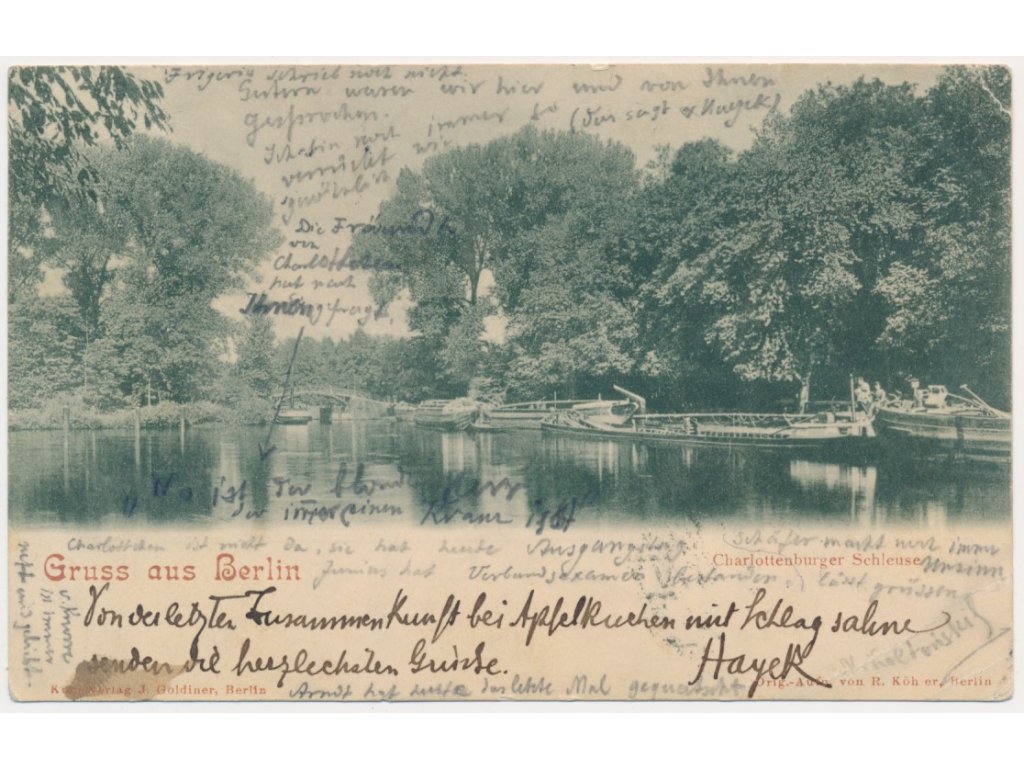 Frigeris schrieb noch nicht
Gestern waren wir hier und von Ihnen
gesprochen.
(Das sagt Hayek)
Ich bin noch immer so
verrückt wie
gewöhnlich
Die Freundin
von
Charlottchen
hat nach
Ihnen gefragt,
"Wo ist der blonde Herr
der immer einen Kranz ißt"
Charlottchen ist nicht da, sie hat heute Ausgangstag
Schäfer macht nur immer
Unsinn
Gruss aus Berlin
Charlottenburger Schleuse
Junius hat Verbandsexamen bestanden, lässt grüssen
Von der letzten Zusammenkunft bei Apfelkuchen mit Schlagsahne
senden die herzlechsten Grüsse. Hayek
Verlag J. Goldiner, Berlin
Arndt hat heute das letzte Mal gequatscht
Orig.-Aufn. von R. Köhler, Berlin